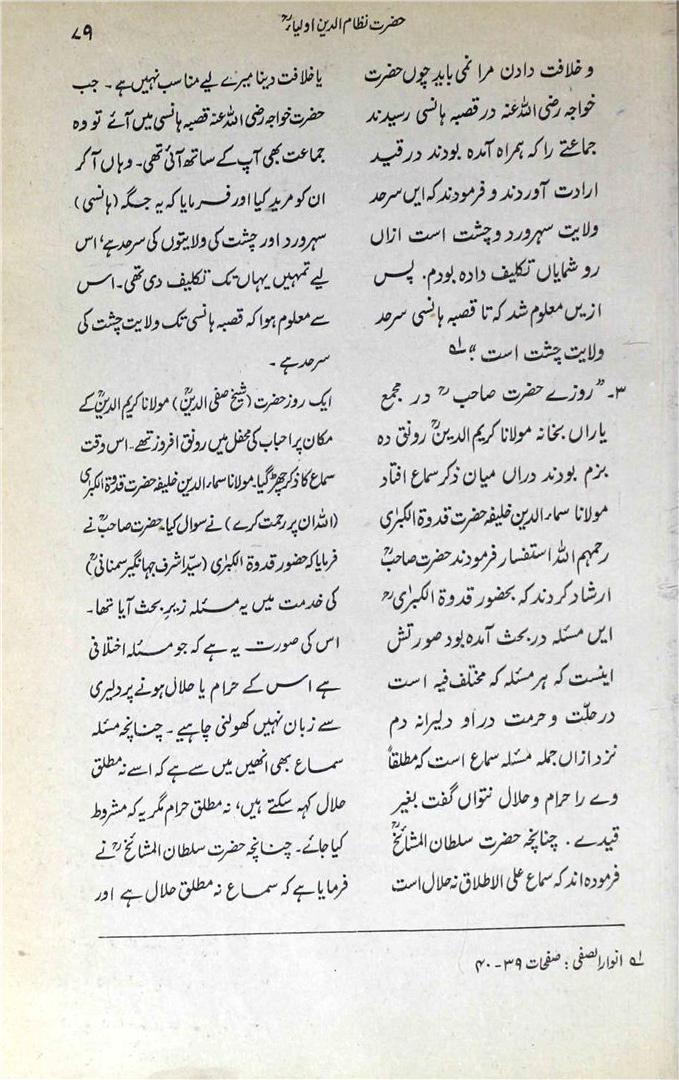 حضرت نظام الدین اولیاءؒ
۷۹
و خلافت دادن مرا نمی باید چوں حضرت
خواجہ رضی اللہ عنہ در قصبہ ہانسی رسیدند
جماعتے را کہ ہمراہ آمدہ بودند در قید
ارادت آوردند و فرمودند کہ ایں سرحد
ولایت سہرورد و چشت است ازاں
رو شمایاں تکلیف دادہ بودم. پس
ازیں معلوم شد کہ تا قصبہ ہانسی سرحد
ولایت چشت است“ لہ
۳۔ ”روزے حضرت صاحبؒ در مجمع
یاراں بخانہ مولانا کریم الدینؒ رونق دہ
بزم بودند دراں میان ذکر سماع افتاد
مولانا سماء الدین خلیفہ حضرت قدوۃ الکبرٰی
رحمہم اللہ استفسار فرمودند حضرت صاحبؒ
ارشاد کردند کہ بحضور قدوۃ الکبرٰیؒ
ایں مسئلہ در بحث آمدہ بود صورتش
اینست کہ ہر مسئلہ کہ مختلف فیہ است
در حلّت و حرمت در او دلیرانہ دم
نزد ازاں جملہ مسئلہ سماع است کہ مطلقاً
وے را حرام و حلال نتواں گفت بغیر
قیدے. چنانچہ حضرت سلطان المشائخؒ
فرمودہ اند کہ سماع علی الاطلاق نہ حلال است
یا خلافت دینا میرے لیے مناسب نہیں ہے۔ جب
حضرت خواجہ رضی اللہ عنہ قصبہ ہانسی میں آئے تو وہ
جماعت بھی آپ کے ساتھ آئی تھی۔ وہاں آکر
ان کو مرید کیا اور فرمایا کہ یہ جگہ (ہانسی)
سہرورد اور چشت کی ولایتوں کی سرحد ہے، اس
لیے تمہیں یہاں تک تکلیف دی تھی۔ اس
سے معلوم ہوا کہ قصبہ ہانسی تک ولایت چشت کی
سرحد ہے۔
ایک روز حضرت (شیخ صفی الدینؒ) مولانا کریم الدینؒ کے
مکان پر احباب کی محفل میں رونق افروز تھے۔ اس وقت
سماع کا ذکر چھڑ گیا۔ مولانا سماء الدین خلیفہ حضرت قدوۃ الکبرٰی
(اللہ ان پر رحمت کرے) نے سوال کیا۔ حضرت صاحبؒ نے
فرمایا کہ حضور قدوۃ الکبرٰی (سیّد اشرف جہانگیر سمنانیؒ)
کی خدمت میں یہ مسئلہ زیرِ بحث آیا تھا۔
اس کی صورت یہ ہے کہ جو مسئلہ اختلافی
ہے اس کے حرام یا حلال ہونے پر دلیری
سے زبان نہیں کھولنی چاہیے۔ چنانچہ مسئلہ
سماع بھی انھیں میں سے ہے کہ اسے نہ مطلق
حلال کہہ سکتے ہیں، نہ مطلق حرام مگر یہ کہ مشروط
کیا جائے۔ چنانچہ حضرت سلطان المشائخؒ نے
فرمایا ہے کہ سماع نہ مطلق حلال ہے اور
لہ انوار الصفی: صفحات ۳۹-۴۰